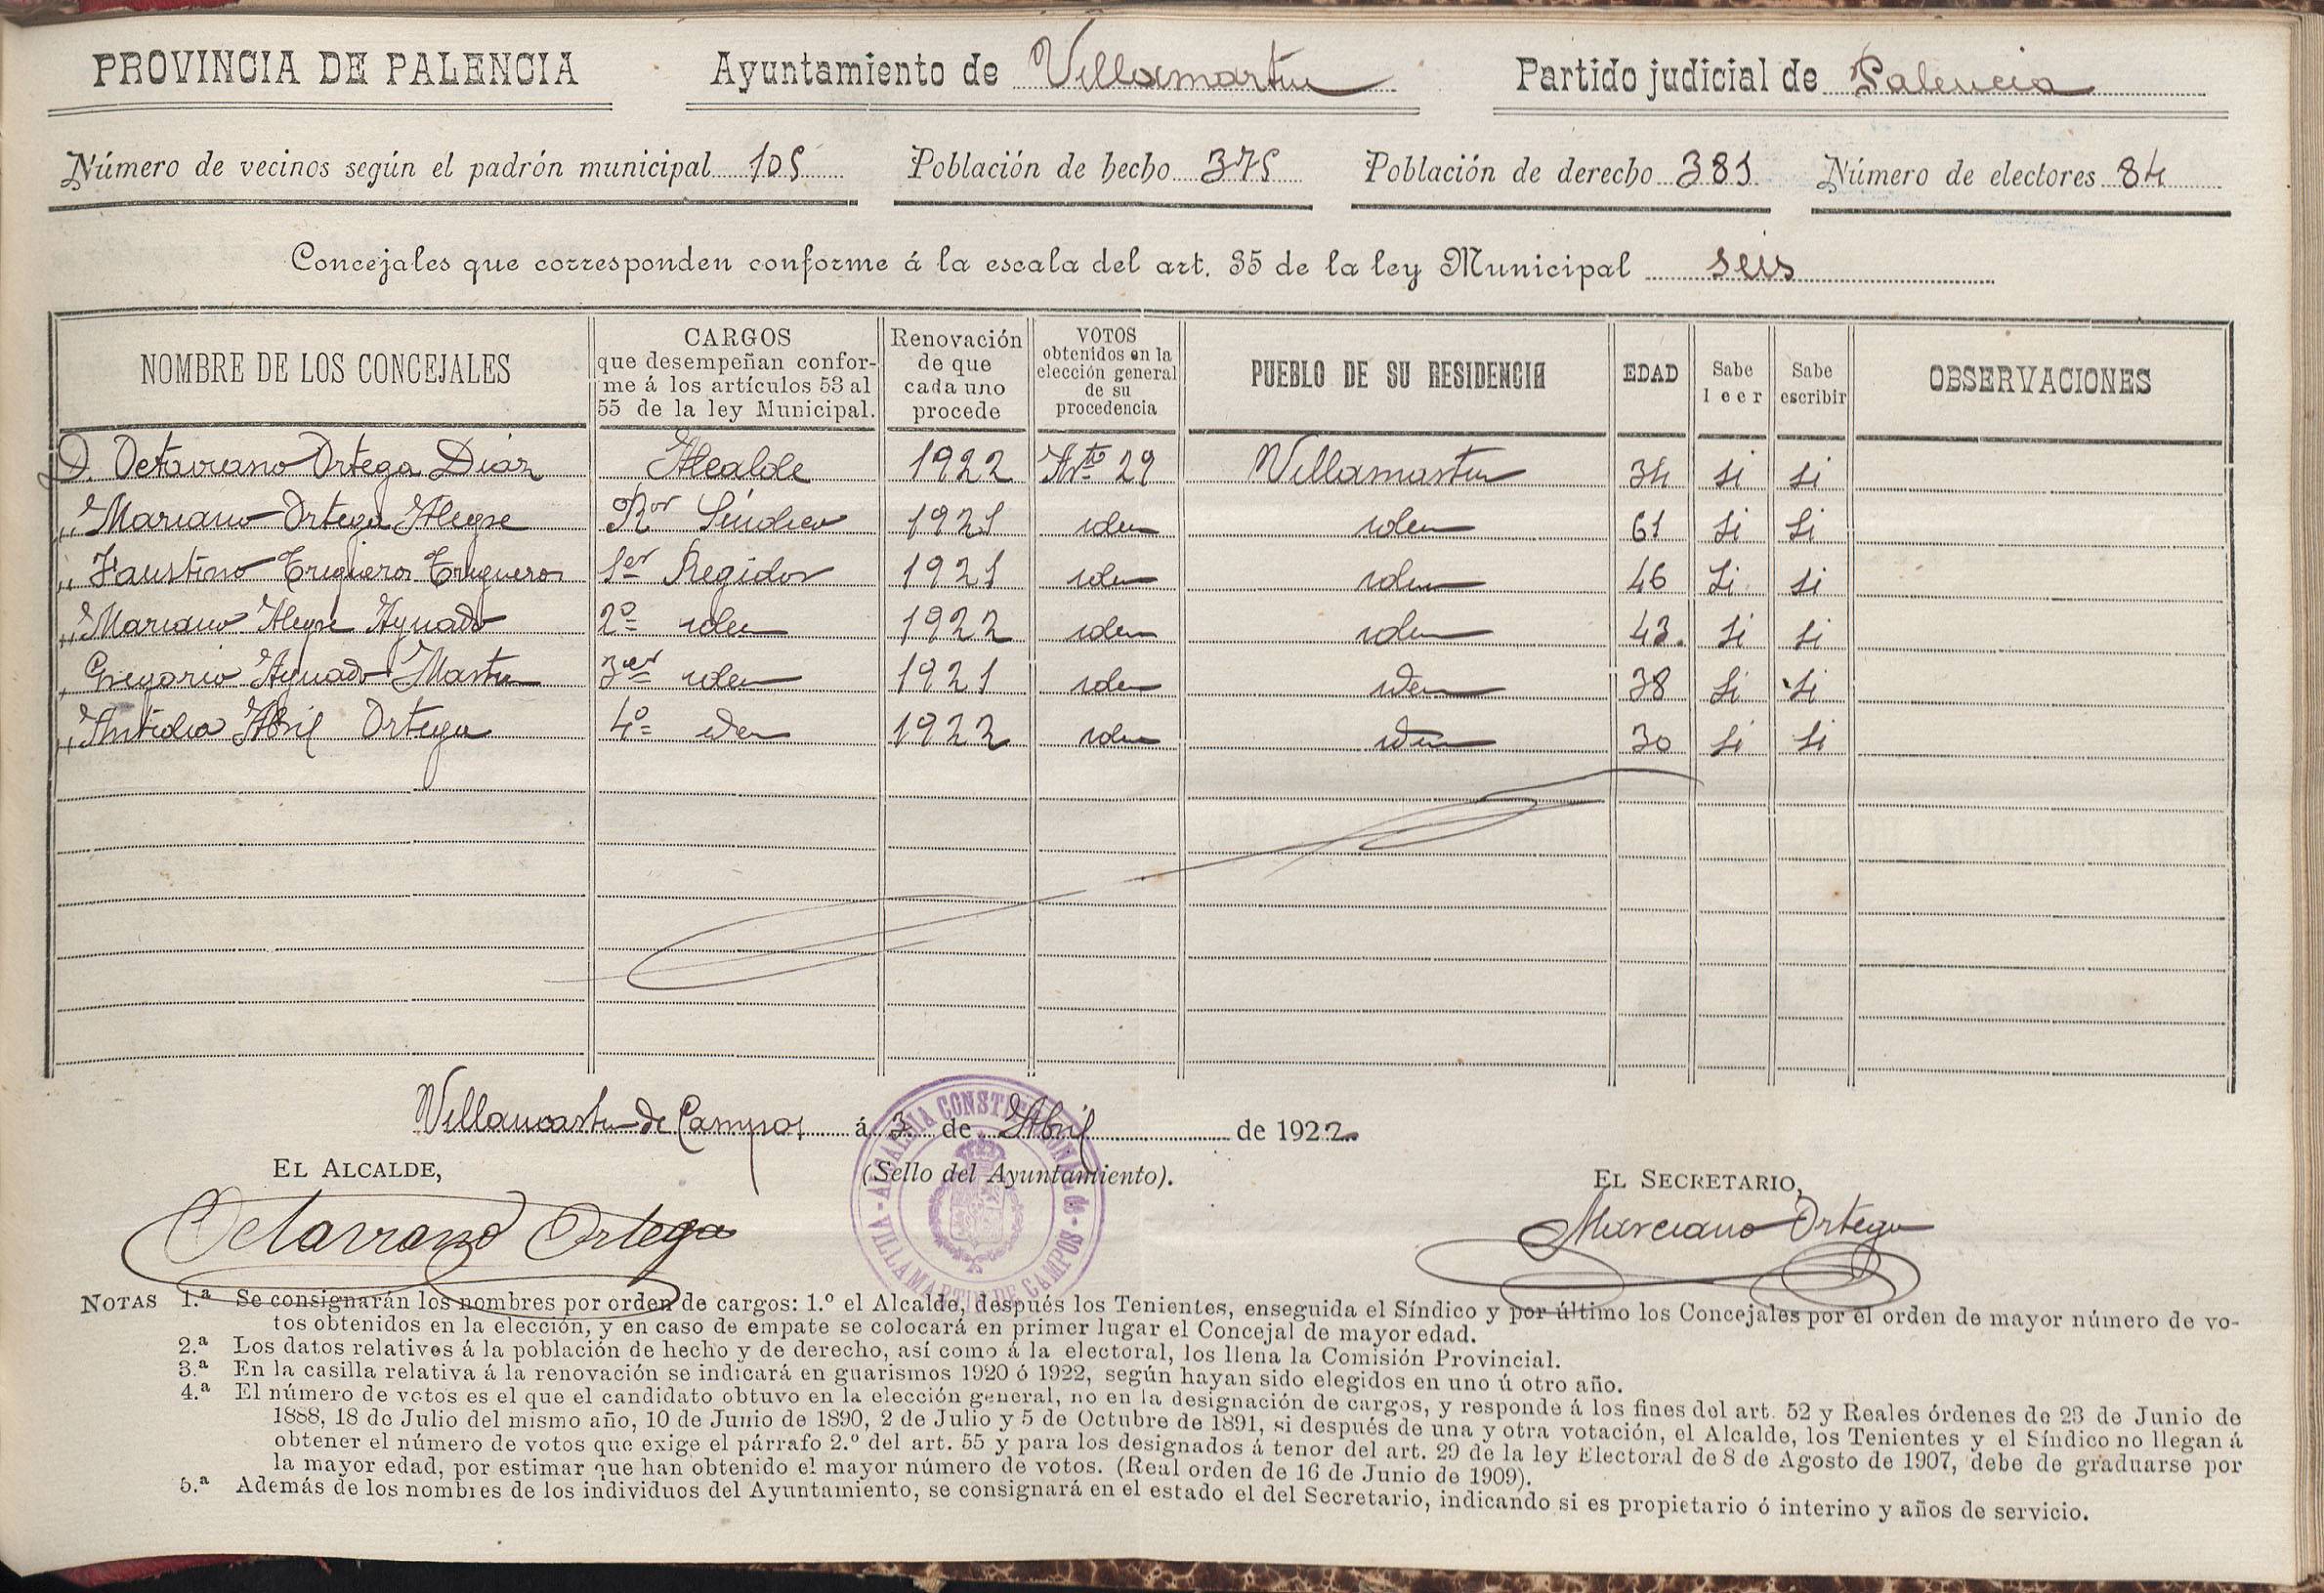 PROVINCIA DE PALENCIA Ayuntamiento de Villamartin Partido judicial de Palencia
Número de vecinos según el padrón municipal 105 Población de hecho 375 Población de derecho 381 Número de electores 84
Concejales que corresponden conforme á la escala del art. 35 de la ley Municipal seis
NOMBRE DE LOS CONCEJALES
CARGOS
que desempeñan confor-
me á los artículos 53 al
55 de la ley Municipal.
Renovación
de que
cada uno
procede
VOTOS
obtenidos en la
elección general
de su
procedencia
PUEBLO DE SU RESIDENCIA
EDAD
Sabe
leer
Sabe
escribir
OBSERVACIONES
D. Octaviano Ortega Diaz Alcalde 1922 Artº 29 Villamartin 34 si si
" Mariano Ortega Alegre Ror Síndico 1921 iden iden 61 Si Si
" Faustino Trigueros Trigueros 1er Regidor 1921 iden iden 46 Si si
" Mariano Alegre Aguado 2º iden 1922 iden iden 43. Si si
" Gregorio Aguado Martin 3er iden 1921 iden iden 38 Si Si
" Antidio Abril Ortega 4º iden 1922 iden iden 30 Si Si
Villamartin de Campos á 3 de Abril de 1922
EL ALCALDE,
(Sello del Ayuntamiento).
EL SECRETARIO,
ALCALDIA CONSTITUCIONAL de - VILLAMARTIN DE CAMPOS -
Octaviano Ortega
Marciano Ortega
NOTAS 1.ª Se consignarán los nombres por orden de cargos: 1.º el Alcalde, después los Tenientes, enseguida el Síndico y por último los Concejales por el orden de mayor número de vo-
tos obtenidos en la elección, y en caso de empate se colocará en primer lugar el Concejal de mayor edad.
2.ª Los datos relativos á la población de hecho y de derecho, así como á la electoral, los llena la Comisión Provincial.
3.ª En la casilla relativa á la renovación se indicará en guarismos 1920 ó 1922, según hayan sido elegidos en uno ú otro año.
4.ª El número de votos es el que el candidato obtuvo en la elección general, no en la designación de cargos, y responde á los fines del art. 52 y Reales órdenes de 23 de Junio de
1888, 18 de Julio del mismo año, 10 de Junio de 1890, 2 de Julio y 5 de Octubre de 1891, si después de una y otra votación, el Alcalde, los Tenientes y el Síndico no llegan á
obtener el número de votos que exige el párrafo 2.º del art. 55 y para los designados á tenor del art. 29 de la ley Electoral de 8 de Agosto de 1907, debe de graduarse por
la mayor edad, por estimar que han obtenido el mayor número de votos. (Real orden de 16 de Junio de 1909).
5.ª Además de los nombres de los individuos del Ayuntamiento, se consignará en el estado el del Secretario, indicando si es propietario ó interino y años de servicio.